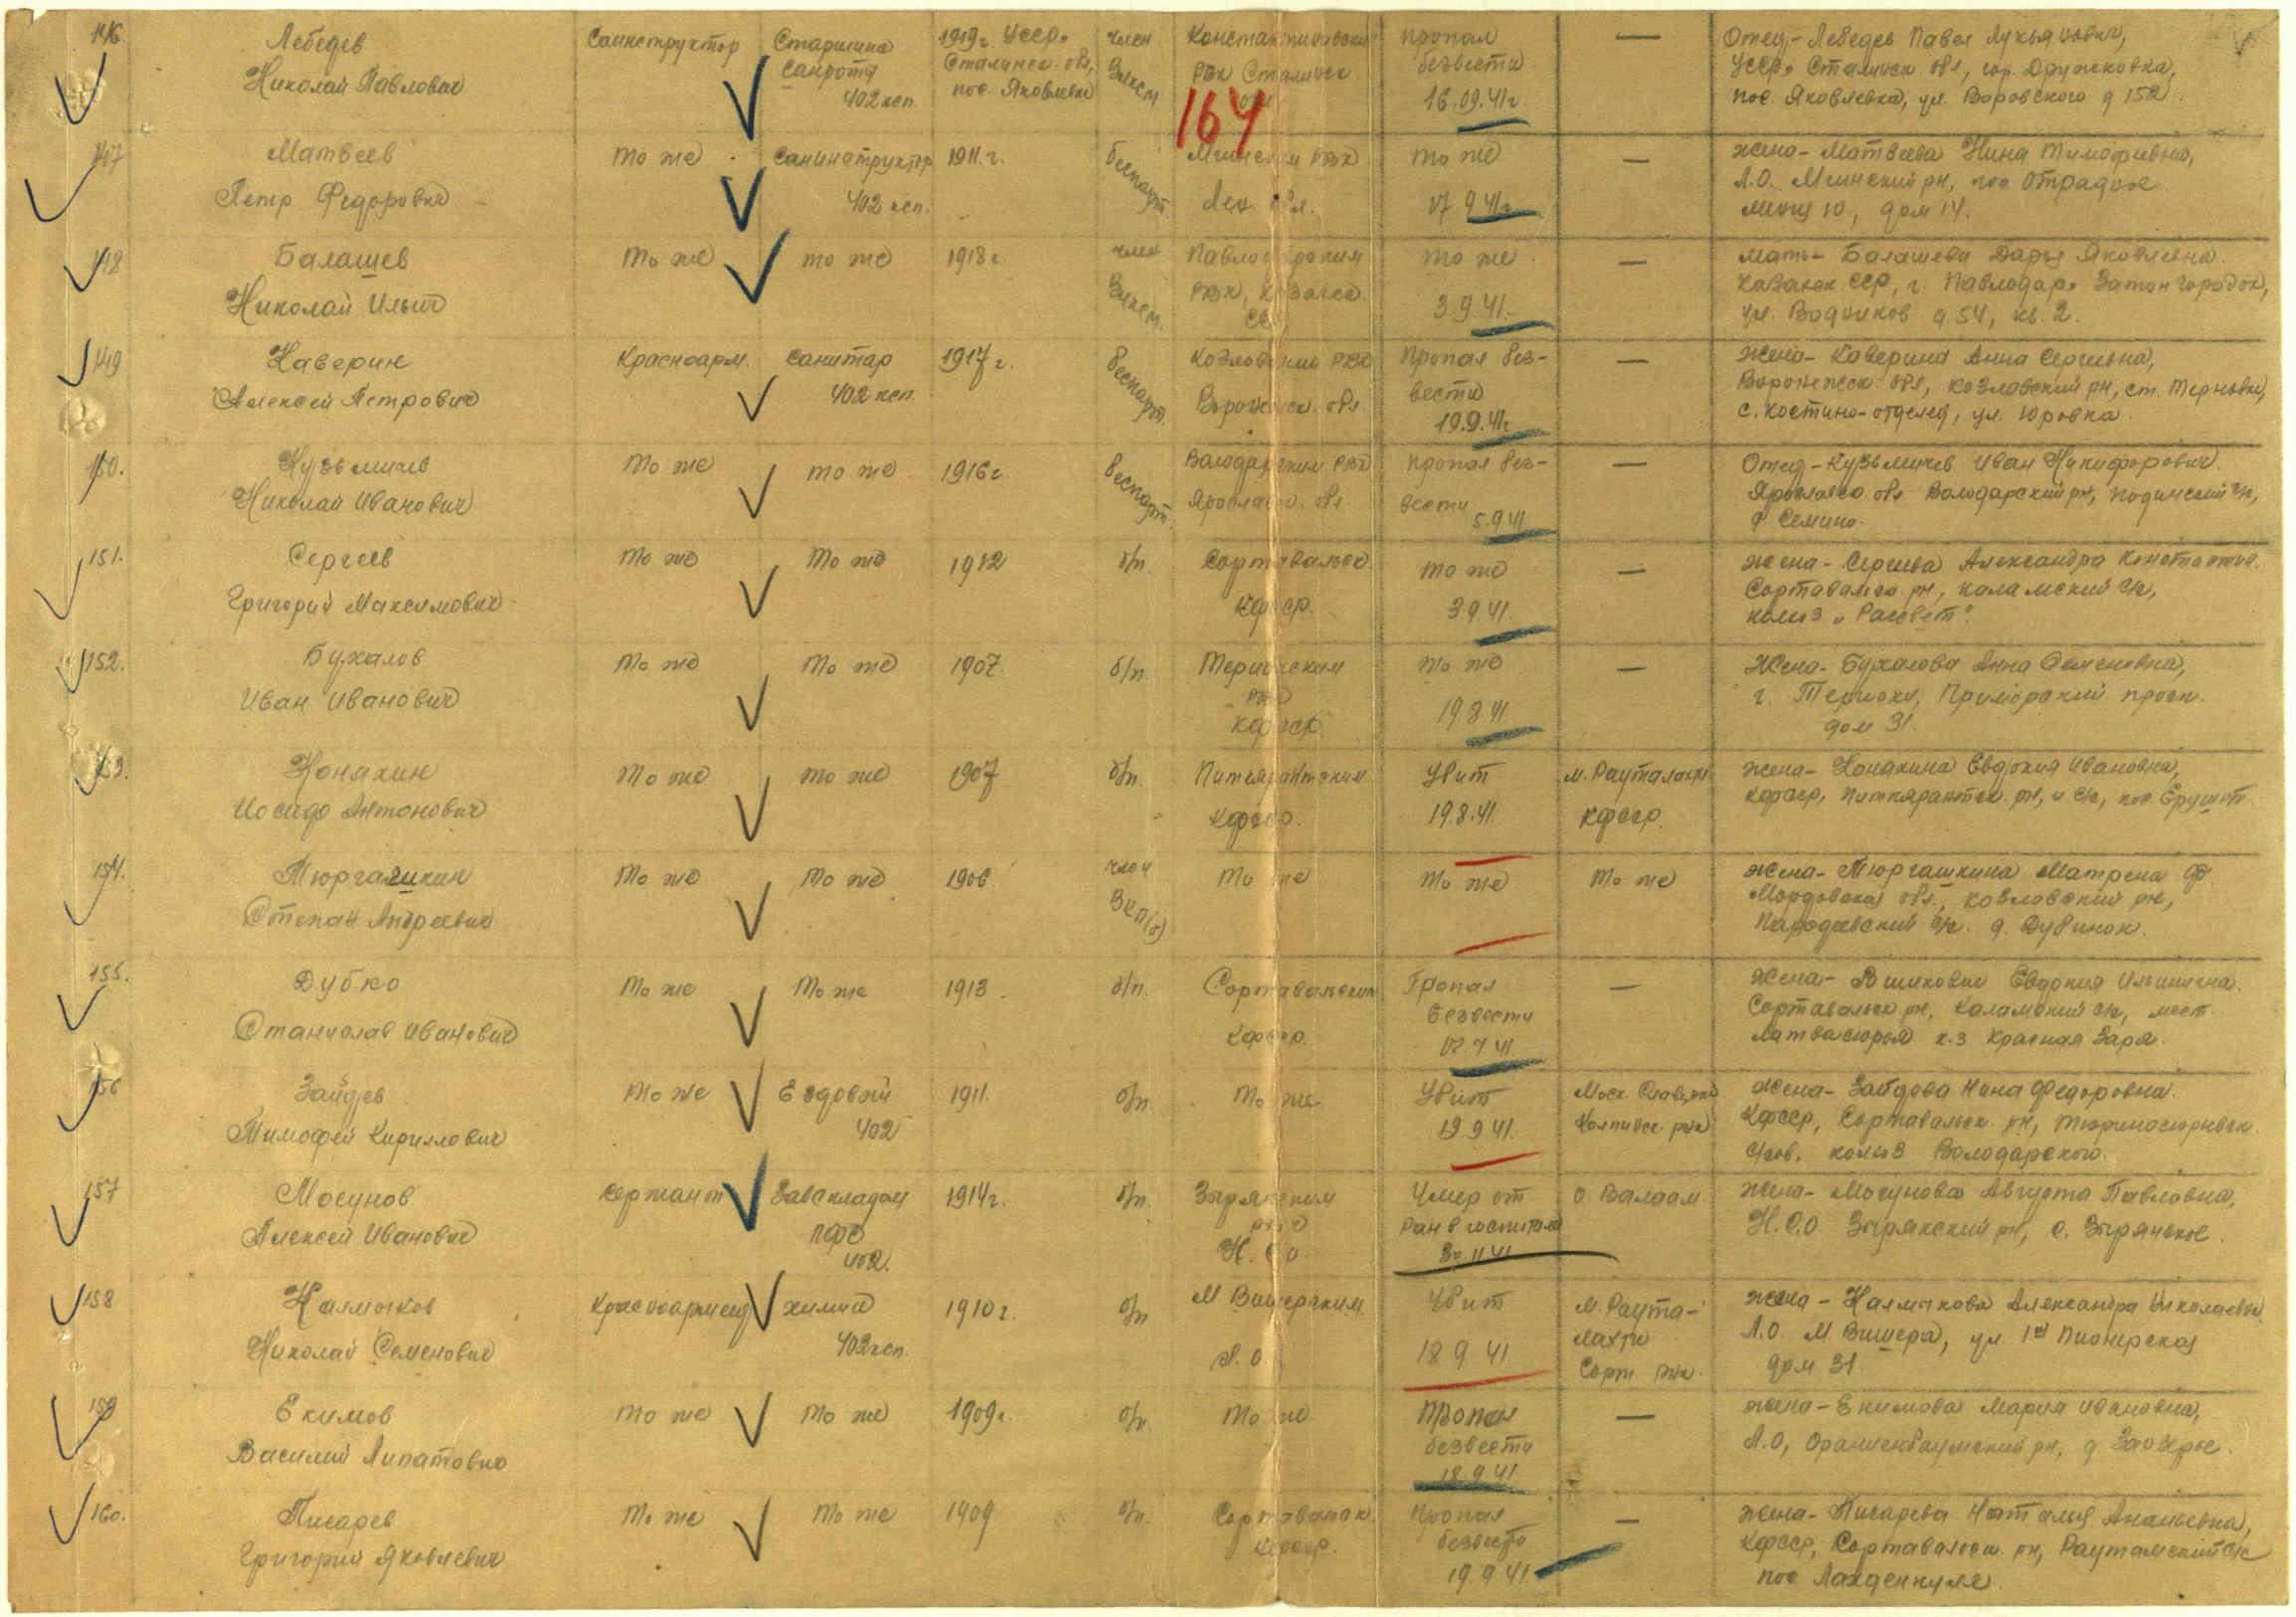 146. Лебедев Санинструктор Старшина 1919г. УССР, член Константиновским пропал — Отец - Лебедев Павел Лукьянович,
Николай Павлович санроты Сталинск. обл, ВЛКСМ РВК Сталинск безвести УССР, Сталинск обл, гор. Дружковка,
402 ксп. пос. Яковлевка обл 16.09.41г. пос. Яковлевка, ул. Воровского д 152.
164
147 Матвеев то же санинструктор 1911.г. беспарт. Мгинским РВК то же — жена - Матвеева Нина Тимофивна,
Петр Федорович 402 ксп. Лен. обл. 17 9 41г. Л.О. Мгинский рн, пос Отрадное
линия 10, дом 14.
148 Балашев то же то же 1918г член Павлодарским то же — мать - Балашева Дарья Яковлевна.
Николай Ильич ВЛКСМ. РВК, Казахск. 3 9 41. Казахск ССР, г. Павлодар, Затон городок,
ССР, ул. Водников д 54, кв. 2.
149 Каверин Красноарм. санитар 1917г. беспарт. Козловским РВК Пропал без- — жена - Каверина Анна Сергиевна,
Алексей Петрович 402 ксп. Воронежск. обл. вести Воронежск обл, Козловский рн, ст. Терновка,
19.9.41г с. Костино-отделец, ул. Юровка.
150. Кузьмичев то же то же 1916г. беспарт. Володарским РВК пропал без- — Отец - Кузьмичев Иван Никифорович.
Николай Иванович Ярославск. обл. вести Ярославск обл. Володарский рн, с/с,
5.9 41 д Семино.
151. Сергеев то же то же 1912 б/п. Сортавальск то же — жена - Сергеева Александра Константин.
Григорий Максимович КФССР. 3 9 41. Сортавальск рн, каламский с/с,
колхоз „Рассвет".
152. Бухалов то же то же 1907. б/п Териокским то же — Жена - Бухалова Анна Семеновна,
Иван Иванович РВК 19 8 41 г. Териоки, Приморский просп.
КФССР дом 31.
153. Конякин то же то же 1907 б/п. Питкярантским Убит м. Рауталахти жена - Конякина Евдокия Ивановна,
Иосиф Антонович КФССР. 19.8.41. КФССР. КФССР, Питкярантск рн,
154. Тюргашкин то же то же 1906 член то же то же то же жена - Тюргашкина Матрена Ф.
Степан Андреевич ВКП(б) Мордовская обл., Козловский рн,
с/с. д. Дубинок.
155. Дубко то же то же 1913. б/п. Сортавальским Пропал — жена - Евдокия Ильинична.
Станислав Иванович КФССР. безвести Сортавальск рн, Каламский с/с, мест.
41 Латвасюрья к-з Красная Заря.
156 Зайцев то же Ездовой 1911. б/п. то же Убит жена - Зайцова Нина Федоровна.
Тимофей Кириллович 402 19 9 41. КФССР, Сортавальск рн,
с/сов, колхоз Володарского.
157 Мосунов сержант Завскладом 1914г. б/п. Зырянским Умер от о Валаам. жена - Мосунова Августа Павловна,
Алексей Иванович ПФС РВК ран в госпитале Н.С.О Зырянский рн, с. Зырянское.
402. Н.С.О. 30.11 41
158 Калмыков красноармеец химик 1910г. б/п М Вишерским Убит м. Раута- жена - Калмыкова Александра Николаевна
Николай Семенович 402 ксп. Л.О. 18 9 41 лахти Л.О. М. Вишера, ул. 1ая Пионерская
Сорт рн дом 31.
159 Екимов то же то же 1909г. б/п. то же Пропал — жена - Екимова Мария Ивановна,
Василий Липатович безвести Л.О, Ораниенбаумский рн, д Заозерье.
18 9 41
160. Писарев то же то же 1909 б/п. Сортавальск Пропал — жена - Писарева Наталья Ананьевна,
Григорий Яковлевич КФССР. безвести КФССР, Сортавальск рн, с/с
19.9 41 пос